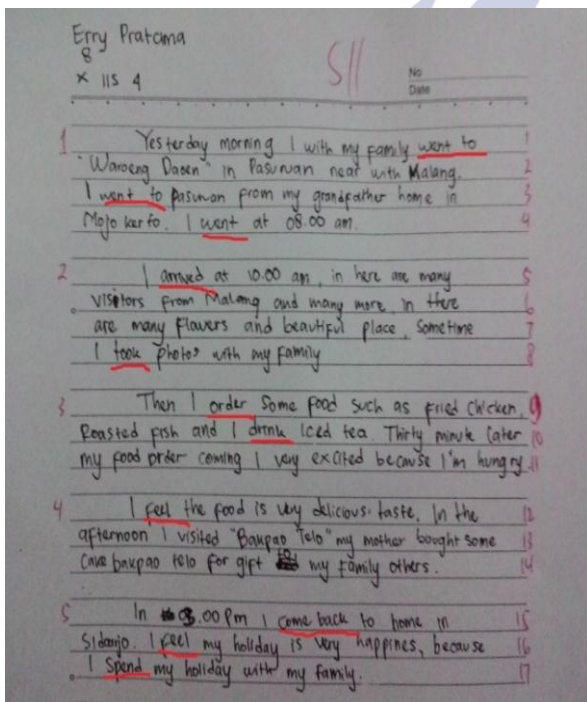 Erry Pratama
8
X IIS 4
S11
No
Date
1 Yesterday morning I with my family went to 1
"Waroeng Daoen" in Pasuruan near with Malang. 2
I went to Pasuruan from my grandfather home in 3
Mojokerto. I went at 08.00 am. 4
2 I arrived at 10.00 am, in here are many 5
visitors from Malang and many more, in there 6
are many flowers and beautiful place, Sometime 7
I took photos with my family 8
3 Then I order Some food such as fried chicken, 9
Roasted fish and I drink iced tea. Thirty minute later 10
my food order coming I very excited because I'm hungry 11
4 I feel the food is very delicious taste. In the 12
afternoon I visited "Bakpao Telo" my mother bought some 13
Cake bakpao telo for gift to my family others. 14
5 In 03.00 Pm I come back to home in 15
Sidoarjo. I feel my holiday is very happines, because 16
I Spend my holiday with my family. 17